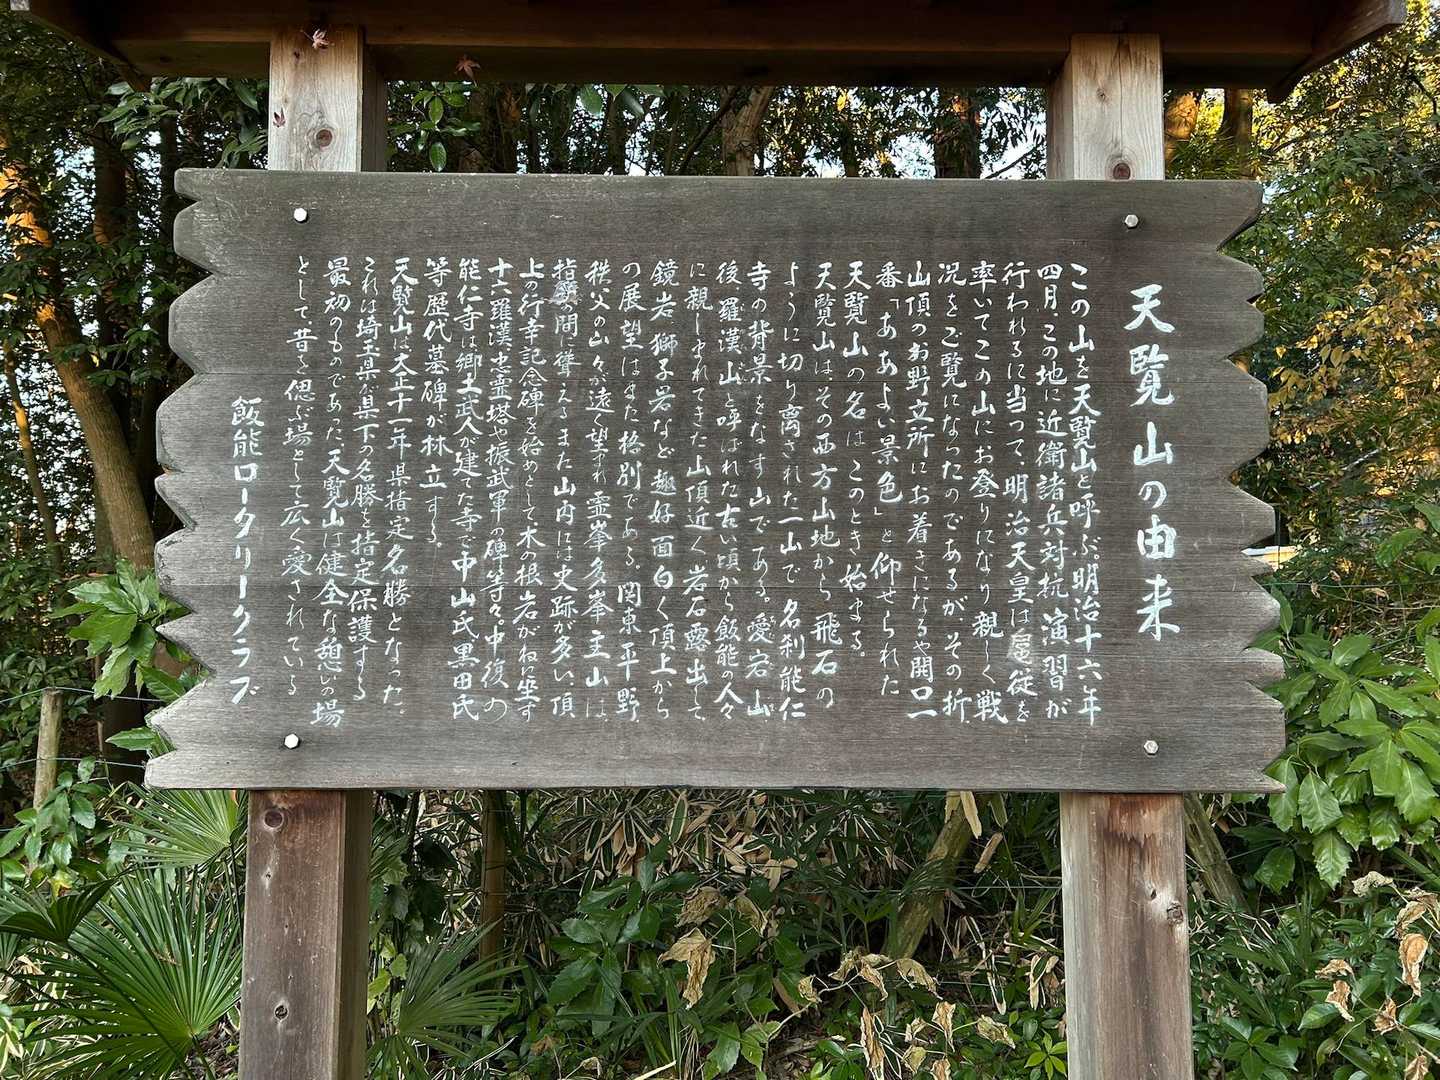 天覧山の由来
この山を天覧山と呼ぶ。明治十六年
四月、この地に近衛諸兵対抗演習が
行われるに当って、明治天皇は扈従を
率いてこの山にお登りになり親しく戦
況をご覧になったのであるが、その折、
山頂のお野立所にお着きになるや開口一
番「ああよい景色」と仰せられた
天覧山の名はこのとき始まる。
天覧山は、その西方山地から飛石の
ように切り離された一山で名刹能仁
寺の背景をなす山である。愛宕山
後羅漢山と呼ばれた古い頃から飯能の人々
に親しまれてきた山頂近く岩石露出して、
鏡岩、獅子岩など趣好面白く頂上から
の展望はまた格別である。関東平野、
秩父の山々が遠く望まれ霊峯多峯主山は、
指の間に聳えるまた山内には史跡が多い、頂
上の行幸記念碑を始めとして、木の根岩がねに坐す
十六羅漢、忠霊塔や振武軍の碑等々。中復の
能仁寺は郷土武人が建てた寺で中山氏黒田氏
等歴代墓碑が林立する。
天覧山は大正十一年県指定名勝となった。
これは埼玉県が県下の名勝を指定保護する
最初のものであった、天覧山は健全な憩いの場
として、昔を偲ぶ場として広く愛されている
飯能ロータリークラブ